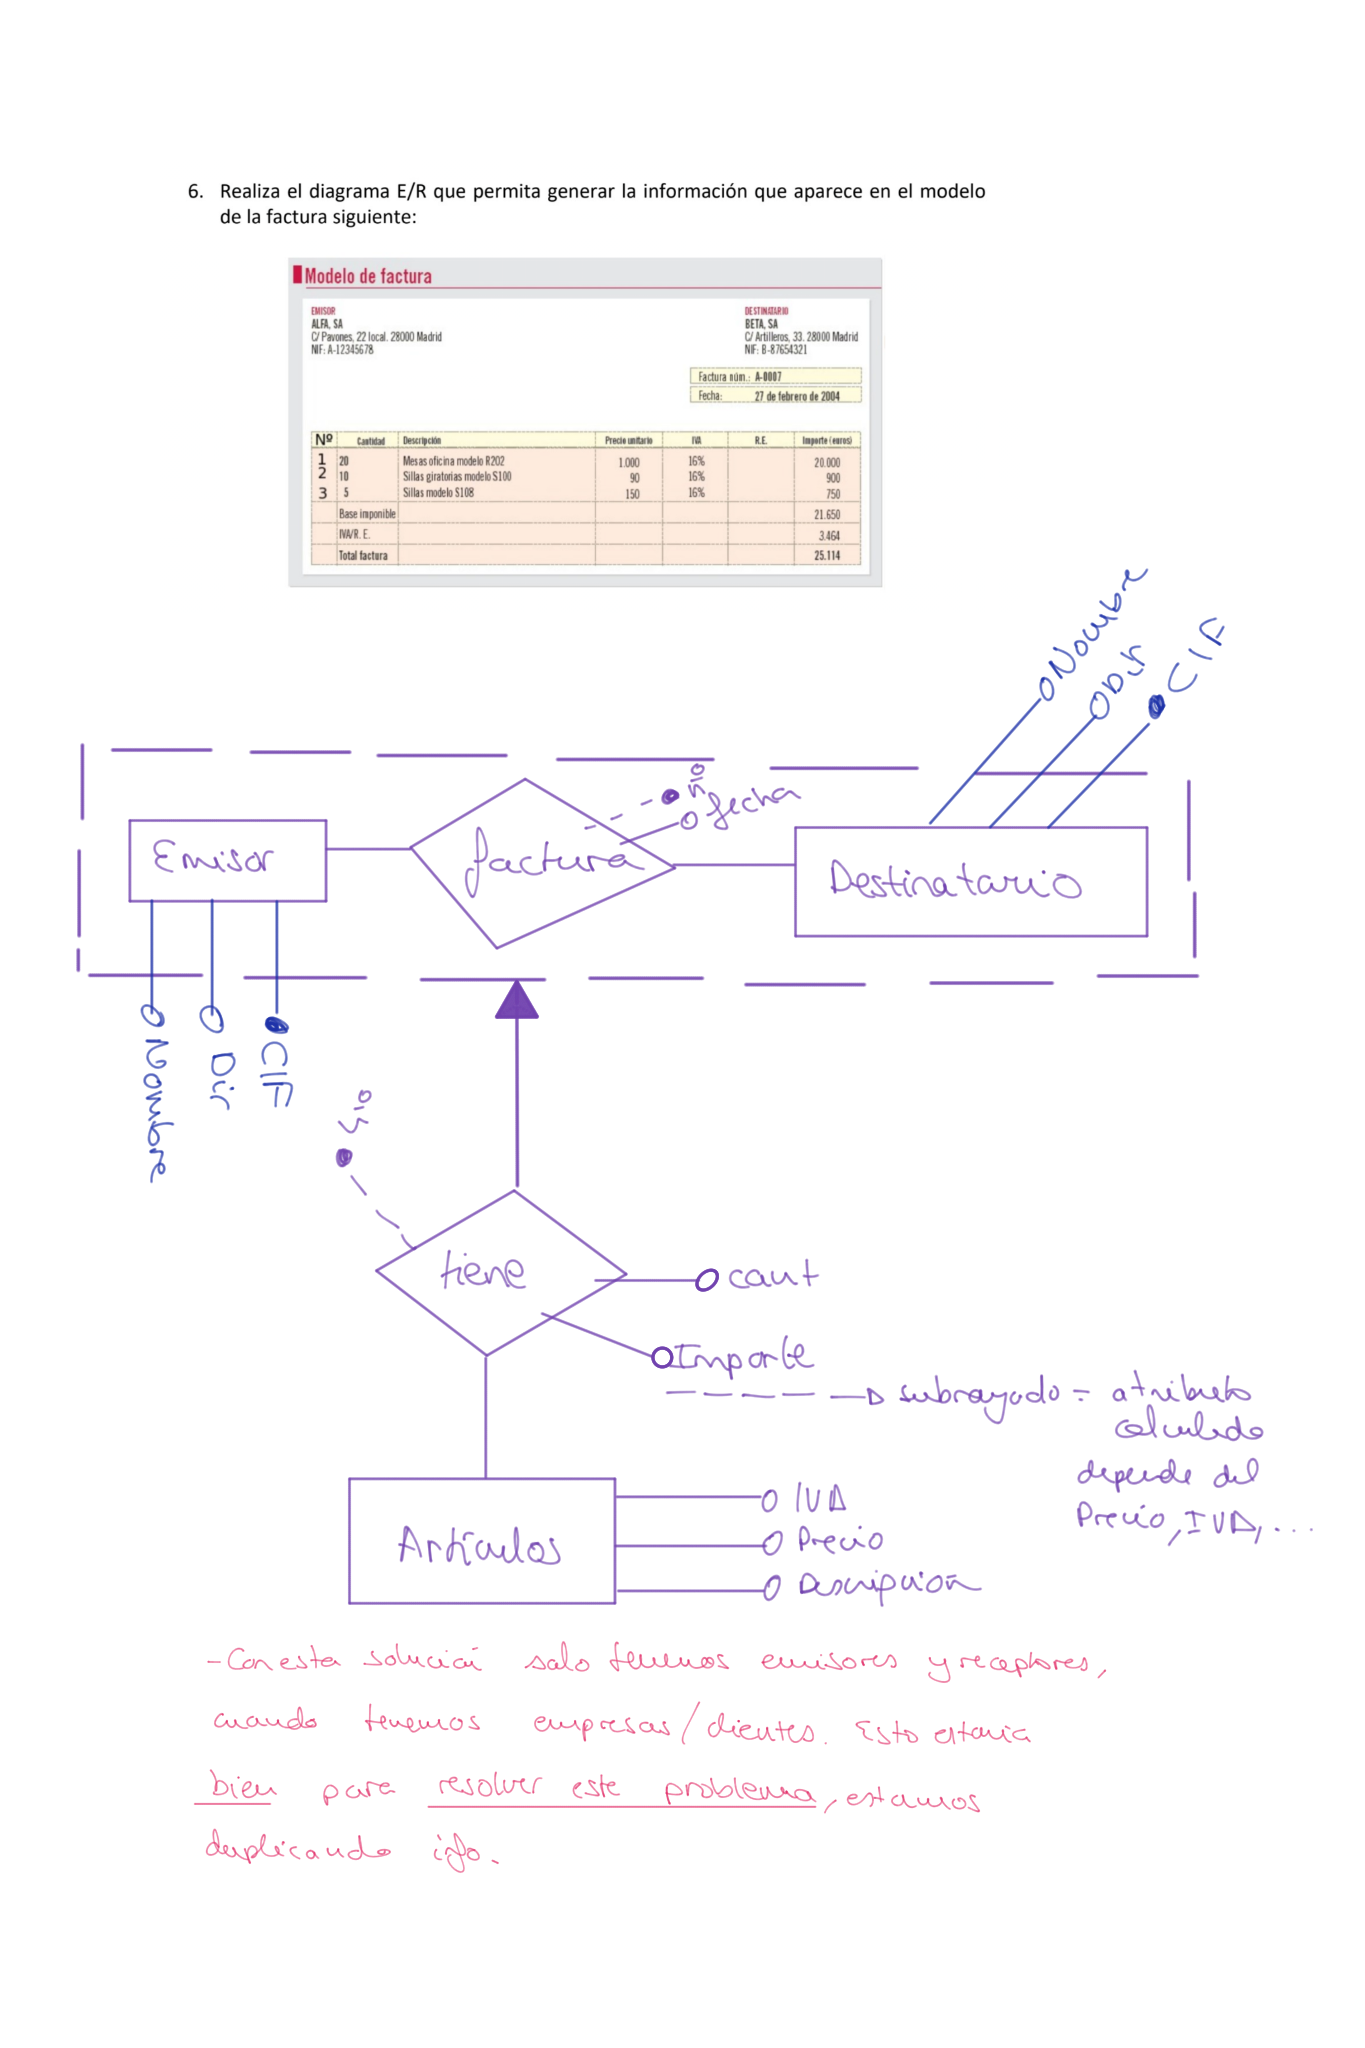 6. Realiza el diagrama E/R que permita generar la información que aparece en el modelo
de la factura siguiente:
Modelo de factura
EMISOR
ALFA, SA
C/ Pavones, 22 local. 28000 Madrid
NIF: A-12345678
DESTINATARIO
BETA, SA
C/ Artilleros, 33. 28000 Madrid
NIF: B-87654321
Factura núm.: A-0007
Fecha: 27 de febrero de 2004
Nº Cantidad Descripción Precio unitario IVA R.E. Importe (euros)
1 20 Mesas oficina modelo R202 1.000 16% 20.000
2 10 Sillas giratorias modelo S100 90 16% 900
3 5 Sillas modelo S108 150 16% 750
Base imponible 21.650
IVA/R. E. 3.464
Total factura 25.114
Nombre
Dir
CIF
nº
fecha
Emisor
factura
Destinatario
Nombre
Dir
CIF
tiene
cant
Importe
subrayado = atributo
calculado
depende del
Precio, IVA, ...
Artículos
IVA
Precio
Descripción
- Con esta solución solo tenemos emisores y receptores,
cuando tenemos empresas/clientes. Esto estaría
bien para resolver este problema, estamos
duplicando info.